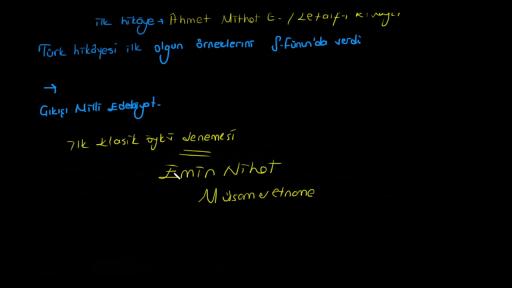 ilk hikâye → Ahmet Mithat E. / Letaif-i
Türk hikâyesi ilk olgun örneklerini S.Fünun'da verdi
→
Çıkışı Milli Edebiyat.
İlk klasik öykü denemesi
Emin Nihat
Müsameretname